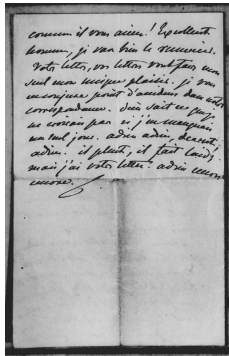 comme il vous aime! Excellent
homme, je vais bien le remercier.
Votre lettre, vos lettres vont faire mon
seul mon unique plaisir. je vous
en conjure point d'accidens dans notre
correspondance. Dieu sait ce que je
ne croirais pas si j'en manquais
un seul jour. adieu adieu,
adieu. il pleut, il fait laid,
mais j'ai votre lettre. adieu encore
encore.